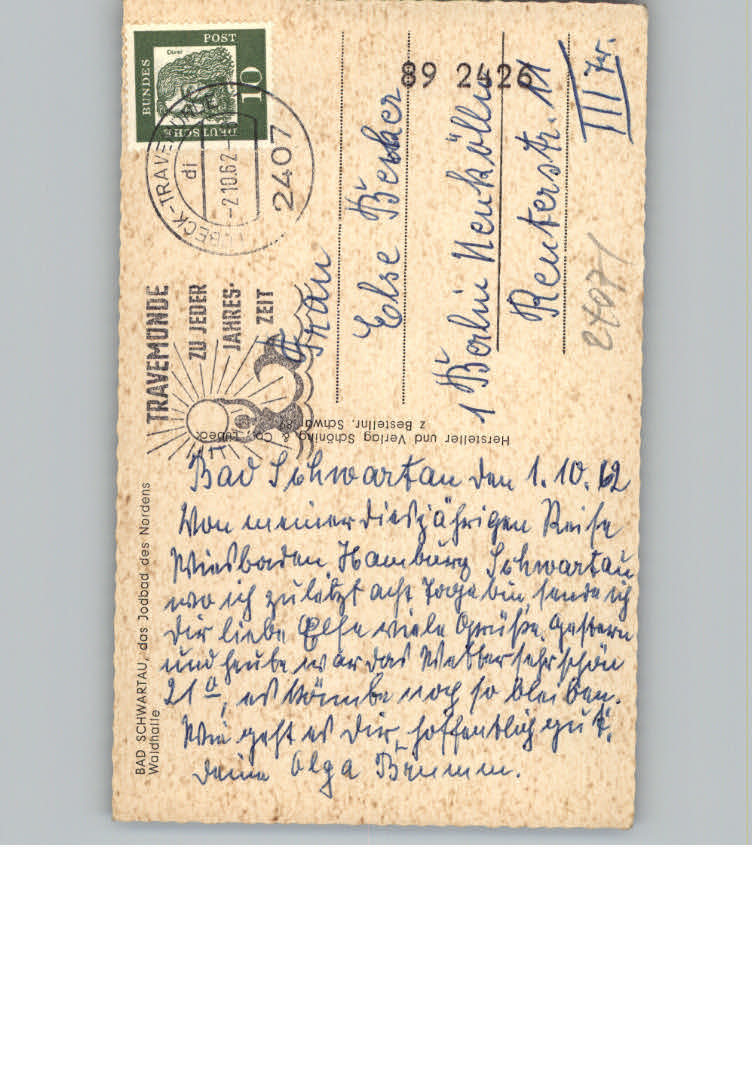 BAD SCHWARTAU, das Jodbad des Nordens
Waldhalle
Bad Schwartau den 1.10.62
Von meiner diesjährigen Reise
Wiesbaden Hamburg Schwartau
wo ich zuletzt acht Tage bin, sende ich
Dir liebe Else viele Grüße. Gestern
und heute war das Wetter sehr schön
21°, es könnte noch so bleiben.
Wie geht es Dir, hoffentlich gut.
Deine Olga Brumm.
Hersteller und Verlag Schöning & Co., Lübeck
Bestellnr. Schwar. 89
TRAVEMÜNDE
ZU JEDER
JAHRES-
ZEIT
LÜBECK-TRAVEMÜNDE
di
-2.10.62
2407
DEUTSCHE
BUNDES
POST
Dürer
10
89 2426
Frau
Else Becker
1 Berlin Neukölln
Reuterstr. 11
III Tr.
24071